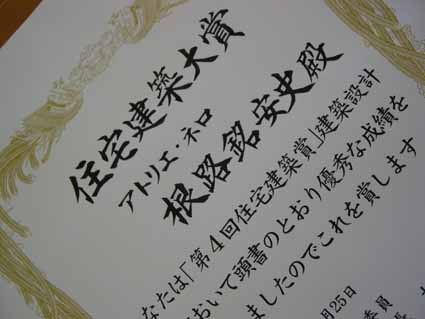 住宅建築大賞
アトリエ・ネロ
根路銘安史殿
なたは「第4回住宅建築賞」建築設計
おいて頭書のとおり優秀な成績を
ましたのでこれを賞します
月25日
委員